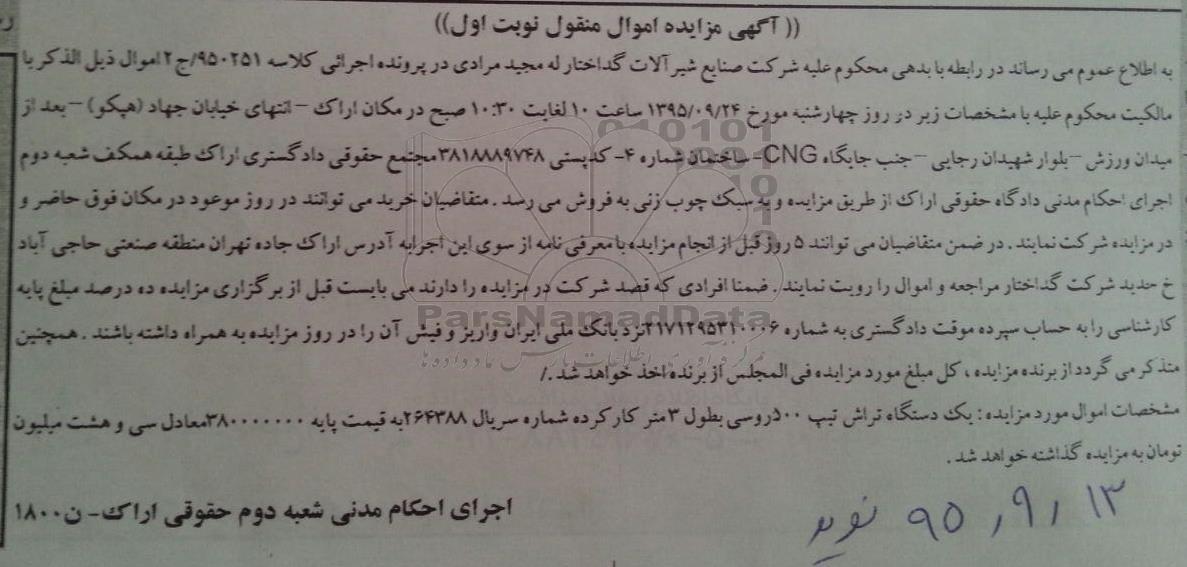 (( آگهی مزایده اموال منقول نوبت اول))
به اطلاع عموم می رساند در رابطه با بدهی محکوم علیه شرکت صنایع شیر آلات گداختار له مجید مرادی در پرونده اجرائی کلاسه ۹۵۰۲۵۱/ج۲ اموال ذیل الذکر با
مالکیت محکوم علیه با مشخصات زیر در روز چهارشنبه مورخ ۱۳۹۵/۰۹/۲۴ ساعت ۱۰ لغایت ۱۰:۳۰ صبح در مکان اراک – انتهای خیابان جهاد (هپکو) – بعد از
میدان ورزش – بلوار شهیدان رجایی – جنب جایگاه CNG- ساختمان شماره ۴- کدپستی ۳۸۱۸۸۸۹۷۴۸ مجتمع حقوقی دادگستری اراک طبقه همکف شعبه دوم
اجرای احکام مدنی دادگاه حقوقی اراک از طریق مزایده و به سبک چوب زنی به فروش می رسد . متقاضیان خرید می توانند در روز موعود در مکان فوق حاضر و
در مزایده شرکت نمایند . در ضمن متقاضیان می توانند ۵ روز قبل از انجام مزایده با معرفی نامه از سوی این اجرا به آدرس اراک جاده تهران منطقه صنعتی حاجی آباد
خ حدید شرکت گداختار مراجعه و اموال را رویت نمایند . ضمنا افرادی که قصد شرکت در مزایده را دارند می بایست قبل از برگزاری مزایده ده درصد مبلغ پایه
کارشناسی را به حساب سپرده موقت دادگستری به شماره ۲۱۷۱۲۹۵۳۱۰۰۰۶ نزد بانک ملی ایران واریز و فیش آن را در روز مزایده به همراه داشته باشند . همچنین
متذکر می گردد از برنده مزایده ، کل مبلغ مورد مزایده فی المجلس از برنده اخذ خواهد شد ./
مشخصات اموال مورد مزایده : یک دستگاه تراش تیپ ۵۰۰ روسی بطول ۳ متر کار کرده شماره سریال ۲۶۴۳۸۸ به قیمت پایه ۳۸۰۰۰۰۰۰۰ معادل سی و هشت میلیون
تومان به مزایده گذاشته خواهد شد .
اجرای احکام مدنی شعبه دوم حقوقی اراک- ن۱۸۰۰
۹۵/۹/۱۳ نوید
ParsNamadData